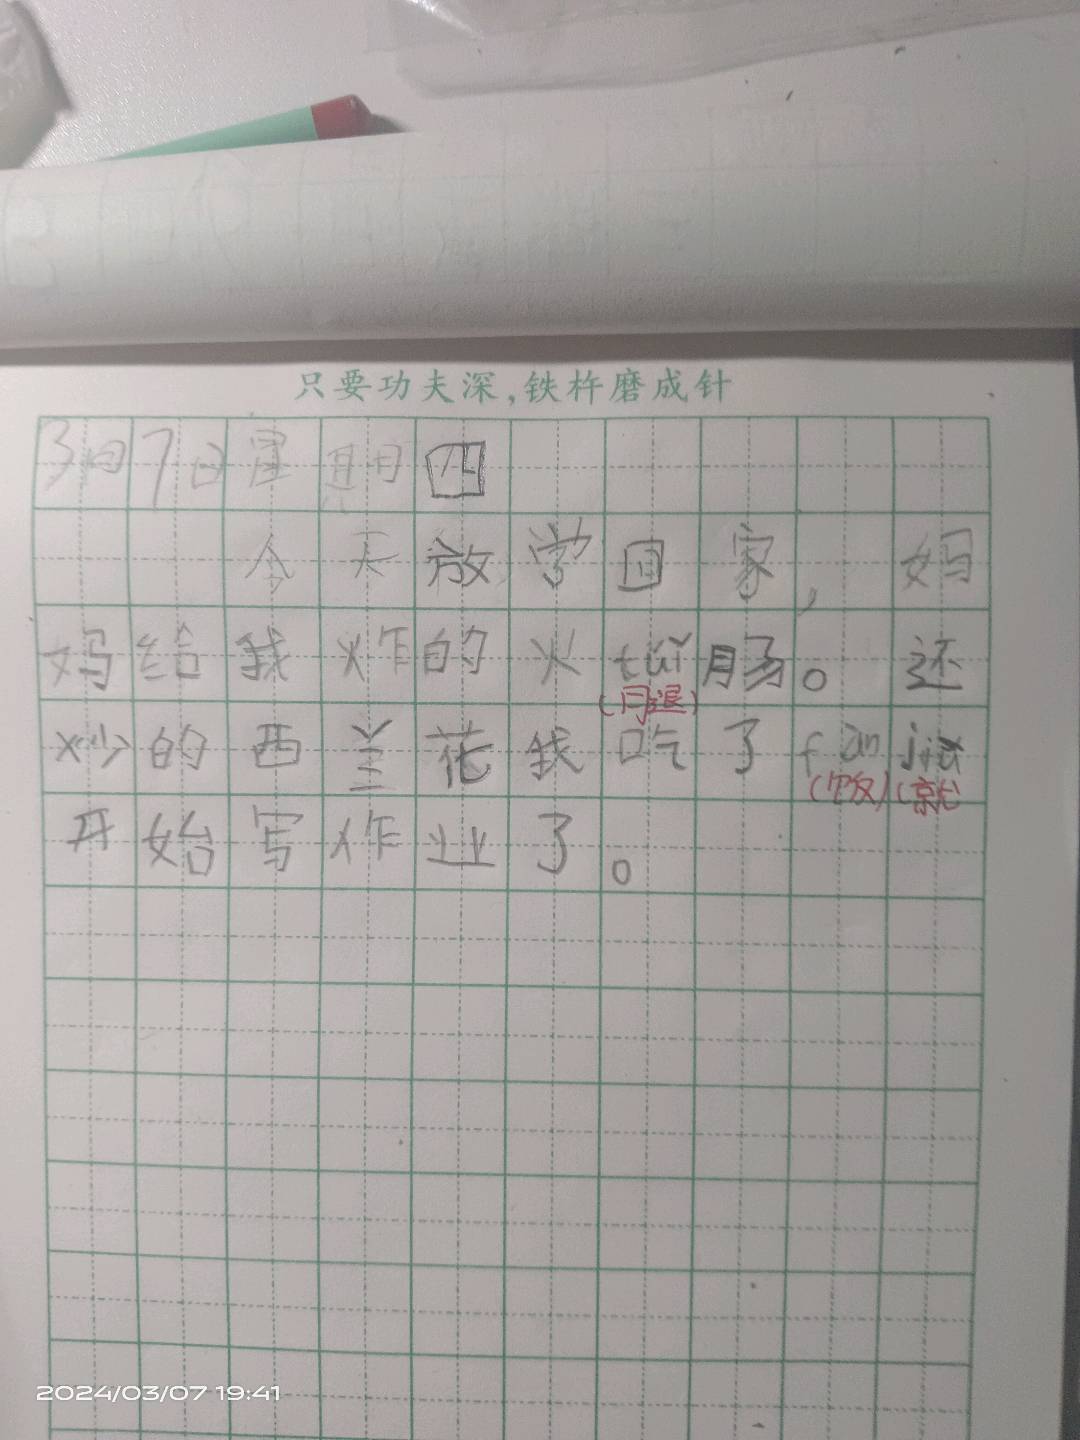 只要功夫深,铁杵磨成针
3月7日星期四
今天放学回家,妈
妈给我炸的火tuǐ肠。还
(腿)
炒的西兰花我吃了fàn jiù
(饭)(就
开始写作业了。
2024/03/07 19:41